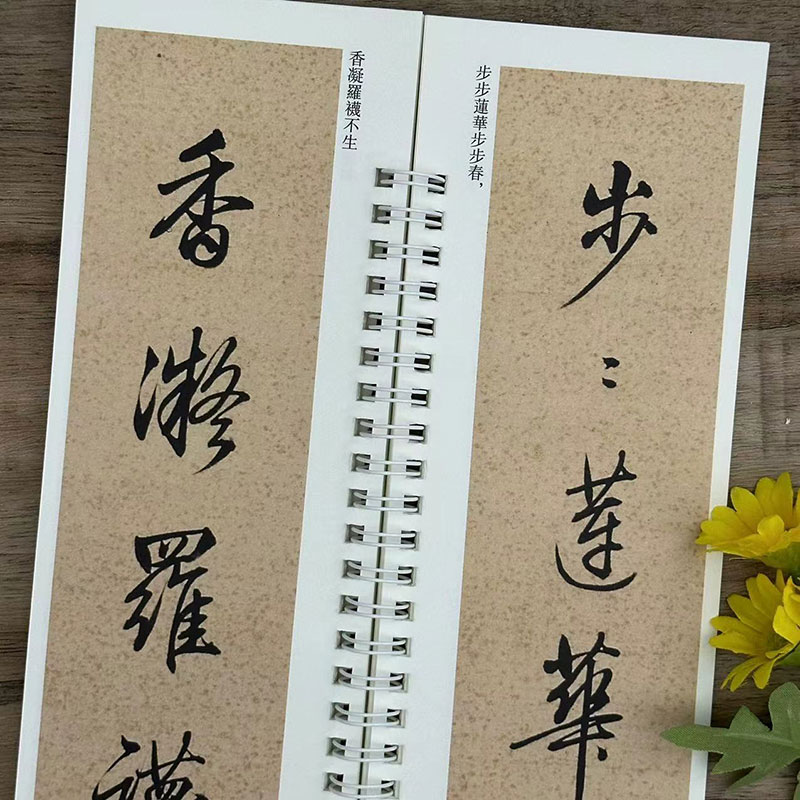 步步蓮華步步春，
步〻蓮華
香凝羅襪不生
香凝羅襪